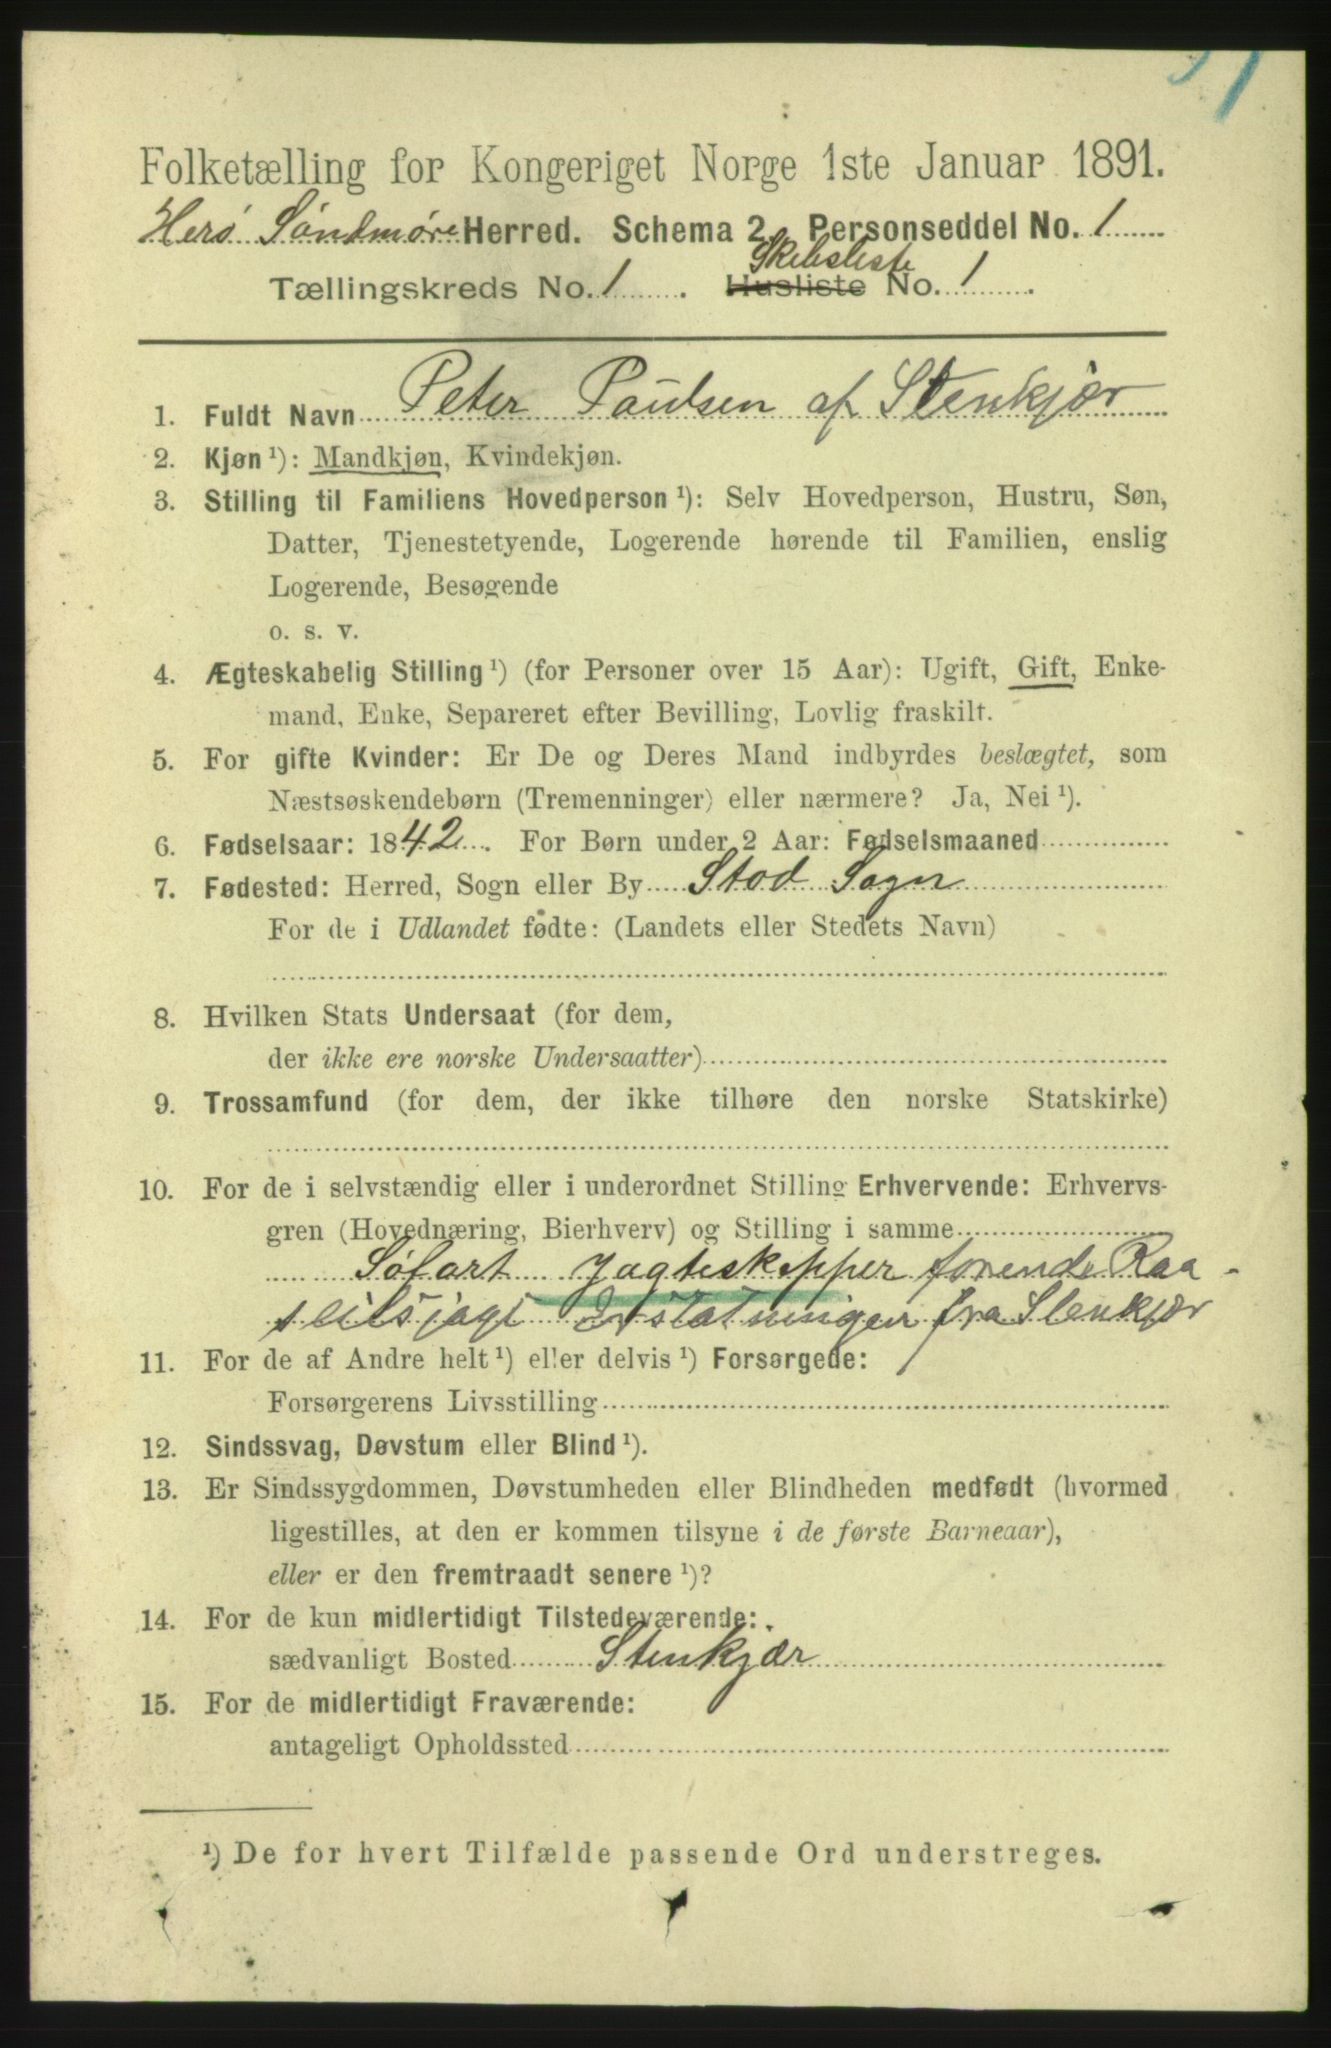 Folketælling for Kongeriget Norge 1ste Januar 1891.
Herö Söndmöre Herred. Schema 2. Personseddel No. 1
Skibsliste
Tællingskreds No. 1. Husliste No. 1.
1. Fuldt Navn Peter Paulsen af Stenkjær
2. Kjøn ¹): Mandkjøn, Kvindekjøn.
3. Stilling til Familiens Hovedperson ¹): Selv Hovedperson, Hustru, Søn,
Datter, Tjenestetyende, Logerende hørende til Familien, enslig
Logerende, Besøgende
o. s. v.
4. Ægteskabelig Stilling ¹) (for Personer over 15 Aar): Ugift, Gift, Enke-
mand, Enke, Separeret efter Bevilling, Lovlig fraskilt.
5. For gifte Kvinder: Er De og Deres Mand indbyrdes beslægtet, som
Næstsøskendebørn (Tremenninger) eller nærmere? Ja, Nei ¹).
6. Fødselsaar: 1842. For Børn under 2 Aar: Fødselsmaaned
7. Fødested: Herred, Sogn eller By Stod Sogn
For de i Udlandet fødte: (Landets eller Stedets Navn)
8. Hvilken Stats Undersaat (for dem,
der ikke ere norske Undersaatter)
9. Trossamfund (for dem, der ikke tilhøre den norske Statskirke)
10. For de i selvstændig eller i underordnet Stilling Erhvervende: Erhvervs-
gren (Hovednæring, Bierhverv) og Stilling i samme
Söfart Jagteskipper förende Raa-
seilsjagt fra Stenkjær
11. For de af Andre helt ¹) eller delvis ¹) Forsørgede:
Forsørgerens Livsstilling
12. Sindssvag, Døvstum eller Blind ¹).
13. Er Sindssygdommen, Døvstumheden eller Blindheden medfødt (hvormed
ligestilles, at den er kommen tilsyne i de første Barneaar),
eller er den fremtraadt senere ¹)?
14. For de kun midlertidigt Tilstedeværende:
sædvanligt Bosted Stenkjær
15. For de midlertidigt Fraværende:
antageligt Opholdssted
¹) De for hvert Tilfælde passende Ord understreges.